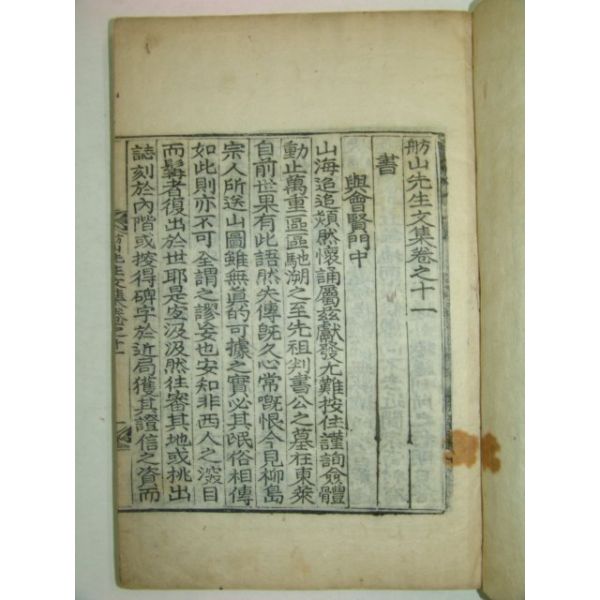 舫山先生文集卷之十一
書
與會賢門中
山海迢迢頹然懷誦屬玆獻發尤難按住謹詢僉體
動止萬重區區馳溯之至先祖判書公之墓在東萊
自前世果有此語然失傳旣久心常嘅恨今見柳島
宗人所送山圖雖無眞的可據之實必其氓俗相傳
如此則亦不可全謂之謬妄也安知非西人之深目
而髯者復出於世耶是宜汲汲然往審其地或挑出
誌刻於內階或按得碑字於近局獲其證信之資而
舫山先生文集卷之十一